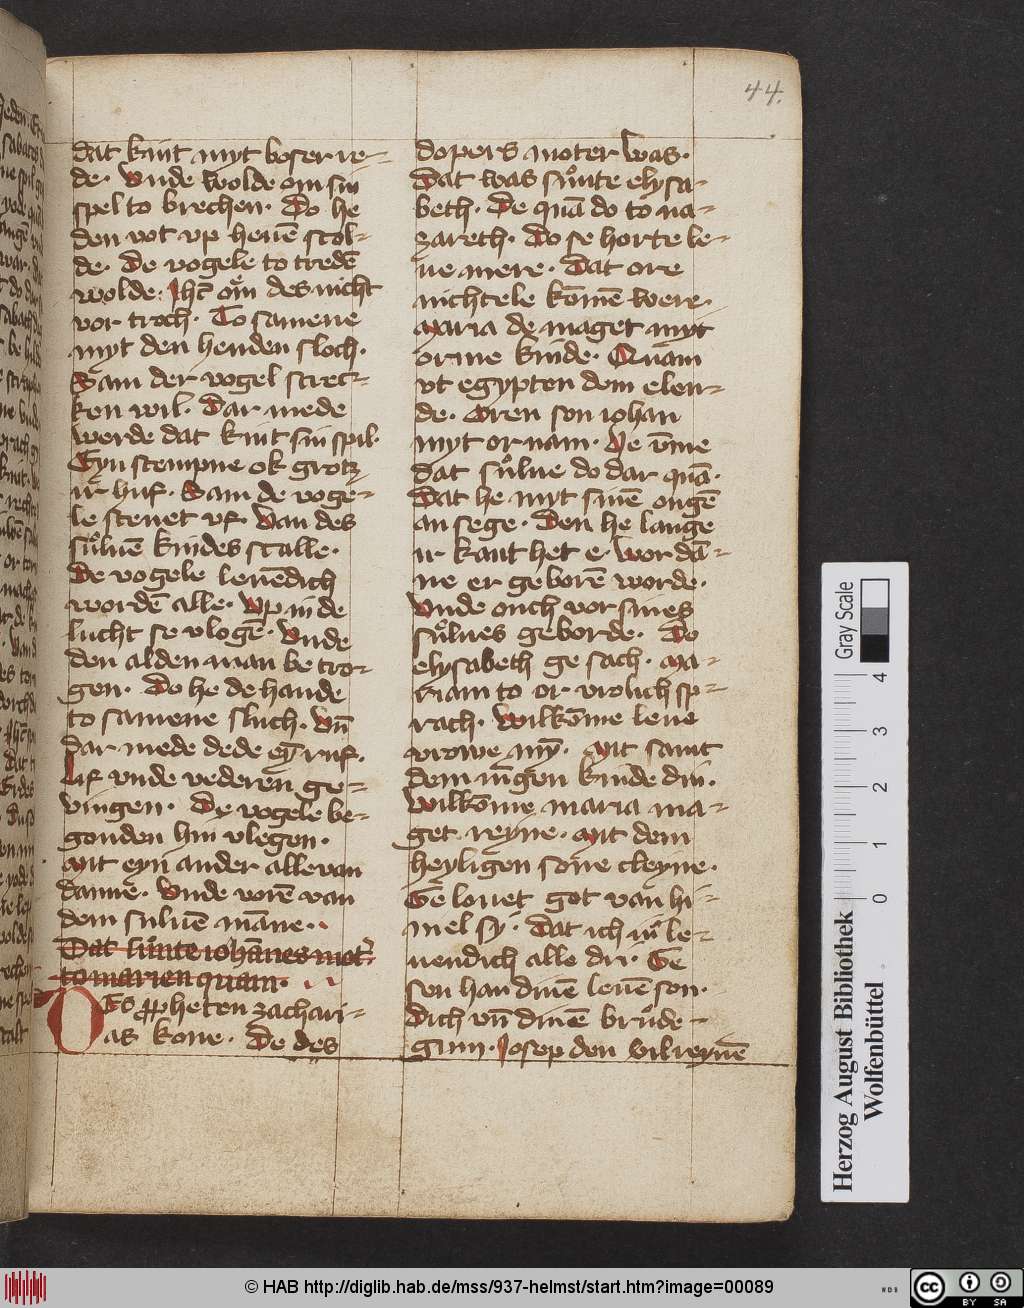 44.
dat kint myt boser re-
de. Vnde wolde om sin
spel to brechen. Do he
den vot vp heuē scol-
de. De vogele to tredē
wolde. Ihc̄ om des nicht
vor troch. To samene
myt den henden sloch.
Sam der vogel screc-
ken wil. Dar mede
werde dat kint sin spil.
Eyn stempne ok grotz
ir huf. Sam de voge-
le stenet vf. Van des
suluē kindes scalle.
De vogele leuēdich
wordē alle. Vp in de
lucht se vlogē. Vnde
den alden man be tro-
gen. Do he de hande
to samene sluch. Vn̄
dar mede dede ey̅ ruf.
Lif vnde vederen ge-
vingen. De vogele be-
gonden hin vlegen.
Mit eyn ander alle van
danne. Vnde vorē van
dem suluē māne.
Dat sunte iohānes mot̄
to marien quam.
Des ꝓpheten zachari-
as kone. De des
dopers moter was.
Dat was sunte elysa-
beth. De quā do to na-
zareth. Do se horte le-
ue mere. Dat ore
nichtele komē were.
Maria de maget myt
orme kinde. Quam
vt egypten dem elen-
de. Oren son iohan
myt or nam. De v̄me
dat sulue do dar quā.
Dat he myt sinē ougē
an sege. Den he lange
ir kant het e. Wor dā-
ne er geborē worde.
Vnde ouch vor sines
sulues geborde. Do
elysabeth ge sach. Ma-
riam to or vrolich sp-
rach. Wilkōme leue
vrowe my̅. Mit samt
dem iūgen kinde din.
Wilkōme maria ma-
get reyne. Mit dem
heyligen sone cleyne.
Ge louet got van hi-
mel sy. Dat ich in le-
uendich alle dri. Ge
sen han dinē leuē son.
Dich vn̄ dinē brude-
gim. Iosep den vil reynē
Herzog August Bibliothek
Wolfenbüttel
Gray Scale
0 1 2 3 4
© HAB http://diglib.hab.de/mss/937-helmst/start.htm?image=00089
WDB
cc BY SA